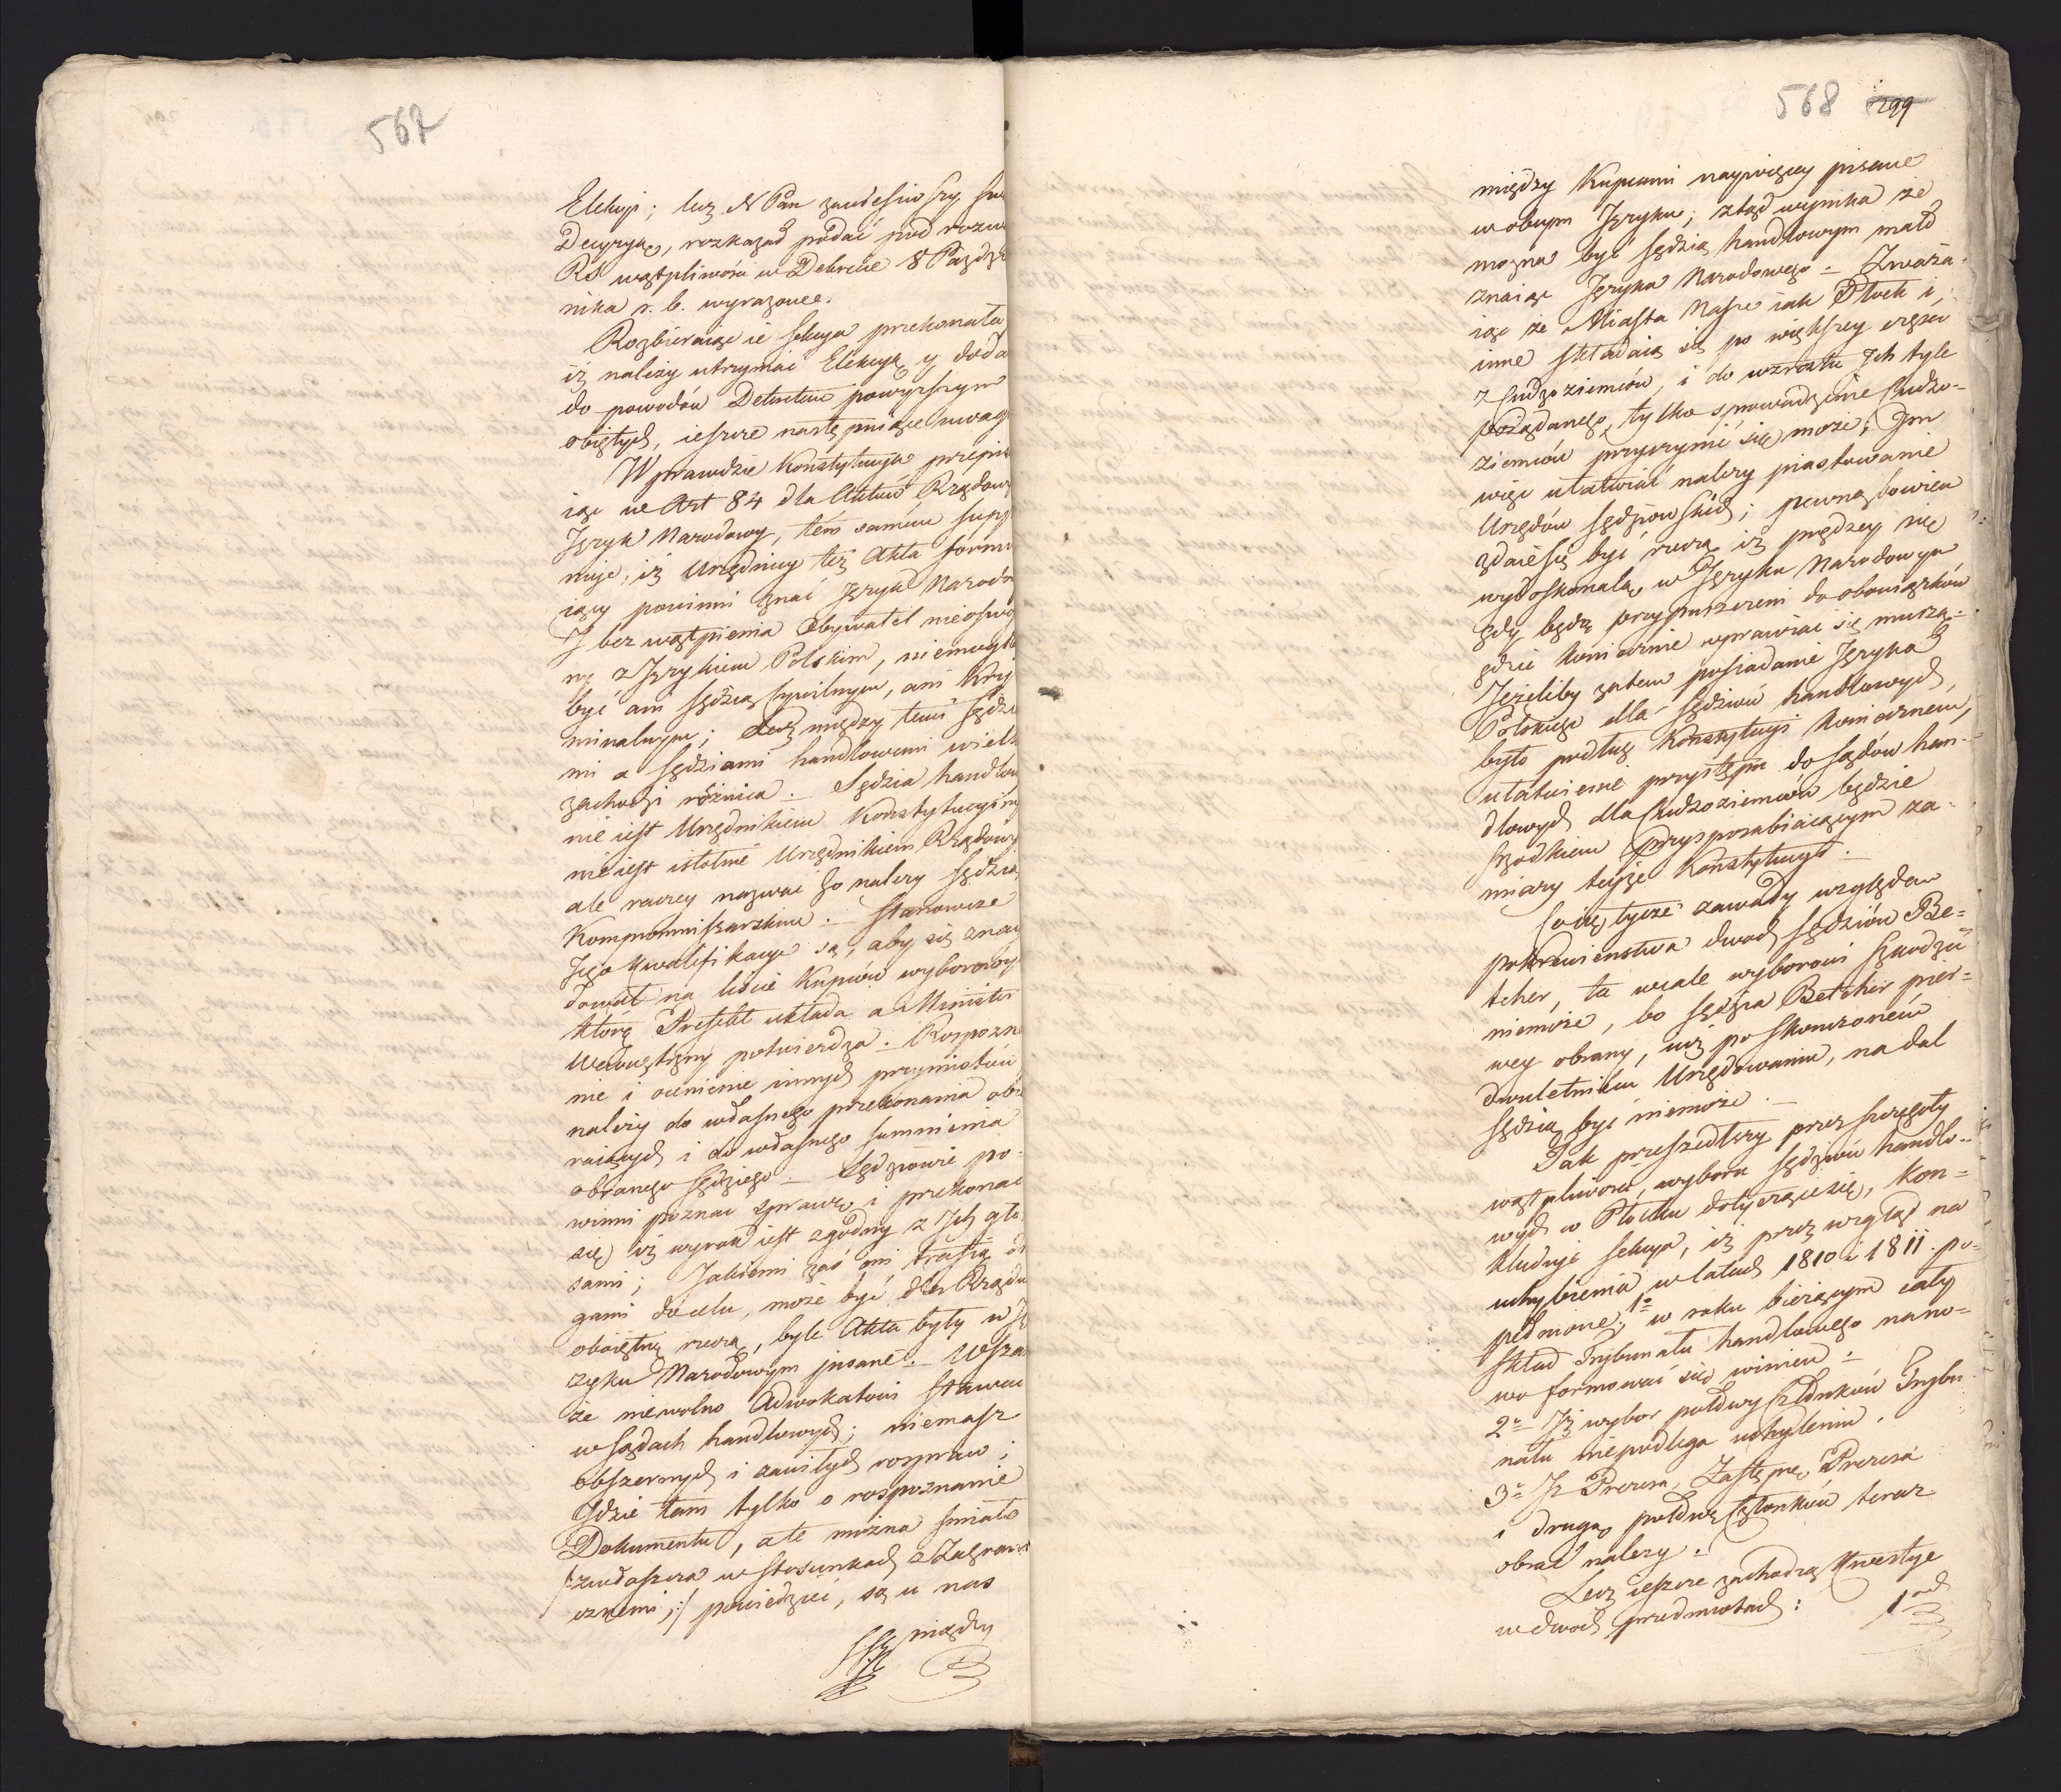 567
Elekcyi; lecz N Pan zawiesiwszy swą
Decyzyą, rozkazał podać pod rozwa
RS wątpliwości w Dekrecie 8 Paźdz
nika r. b. wyrażone.
Rozbieraiąc ie Sekcya przekonała
iż należy utrzymać Elekcyę y doda
do powodów Dekretem powyższym
obiętych, ieszcze następuiące uwagi
W prawdzie Konstytucya przepisu
iąc we Art 84 dla Aktów Rządowy
Język Narodowy, tém samém suppo
nuje, iż Urzędnicy też Akta formu
iący powinni znać Język Narodo
J bez wątpienia Obywatel nieoswo
ny z Językiem Polskim, niemógłb
być ani Sędzią Cywilnym, ani Kry
minalnym; Lecz między temi Sędzia
mi a Sędziami handlowemi wielka
zachodzi różnica. Sędzia handlow
nie iest Urzędnikiem Konstytucyiny
nie iest istotnie Urzędnikiem Rządowy
ale raczey nazwać go należy Sędzią
Kompromissarskim. Stanowcze
Jego Kwalifikacye są, aby się znay
dował na liście Kupców wyborowy
którą Prefekt układa a Minister
Wewnętrzny potwierdza. Rozpozna
nie i ocenienie innych przymiotów
należy do własnego przekonania obie
raiących i do własnego summienia
obranego Sędziego. Sędziowie po-
winni poznać sprawę i przekonać
się iż wyrok iest zgodny z Jch gło
sami; Jakiemi zaś oni trafią dr
gami do celu, może być dla Rządu
oboiętną rzeczą, byle Akta były w Ję
zyku Narodowym pisane. Wsza
że niewolno Adwokatom stawać
w Sądach handlowych; niemasz
obszernych i zawiłych rozpraw;
Jdzie tam tylko o rozpoznanie
Dokumentu, ale można śmiało
/:zwłaszcza w stosunkach z Zagrani
cznemi:/ powiedzieć, są u nas
między
568 299
między Kupcami naywięcey pisane
w obcym Języku; ztąd wynika że
można być Sędzią handlowym mało
znaiąc Języka Narodowego. Zważa-
iąc że Miasta Nasze iak Płock i
inne składaią się po większey części
z Cudzoziemców, i do wzrostu Jch tyle
pożądanego, tylko sprowadzenie Cudzo-
ziemców przyczynić się może; Jm
więc ułatwiać należy piastowanie
Urzędów Sędziowskich; pewną bowiem
zdaie się być rzeczą iż prędzey się
wydoskonalą w Języku Narodowym
gdy będą przypuszczeni do obowiązków
gdzie koniecznie wprawiać się muszą.
Jeżeliby zatem posiadanie Języka
Polskiego dla Sędziów handlowych,
było podług Konstytucyi koniecznem,
ułatwienie przystępu do Sądów han-
dlowych dla Cudzoziemców będzie
Srzodkiem przysposabiaiącym za-
miary teyże Konstytucyi.
Co się tycze zawady względem
pokrewieństwa dwóch Sędziów Be-
tcher, ta wcale wyborowi szkodzić
niemoże, bo Sędzia Betcher pier-
wey obrany, iuż po skończoném
dwuletniém Urzędowaniu, nadal
Sędzią być niemoże.
Tak przeszedłszy przez szczegóły
wątpliwości, wyboru Sędziów handlo-
wych w Płocku dotyczące się, kon-
kluduje Sekcya, iż przez wzgląd na
uchybienia w latach 1810 i 1811. po-
pełnione, 1o w roku bieżącym cały
skład Trybunału handlowego nano-
wo formować się winien.
2o Jż wybor połowy Członków Trybu-
nału niepodlega uchyleniu.
3o Jż Prezesa, Zastępcę Prezesa
i drugą połowę Członków teraz
obrać należy.
Lecz ieszcze zachodzą Kwestye
w dwoch przedmiotach:
1od